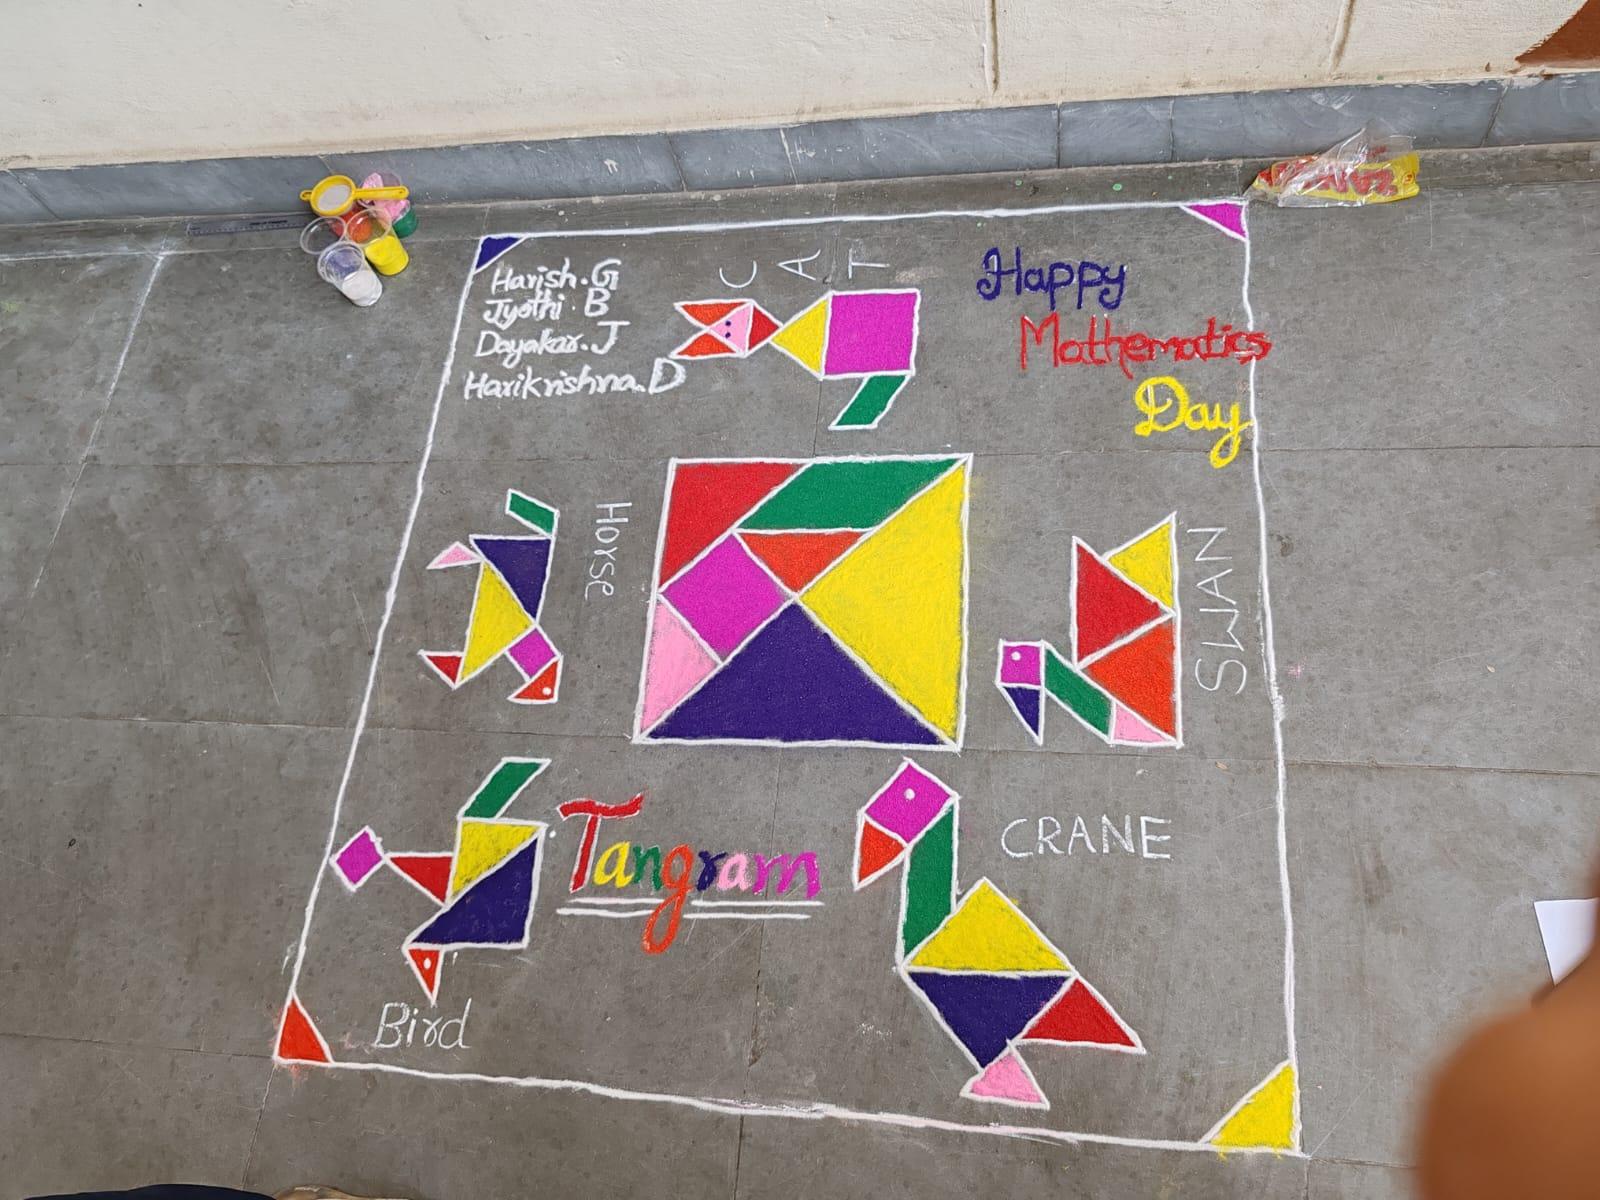 Harish.G
Jyothi.B
Dayakar.J
Harikrishna.D
CAT
Happy
Mathematics
Day
Horse
SWAN
Tangram
CRANE
Bird